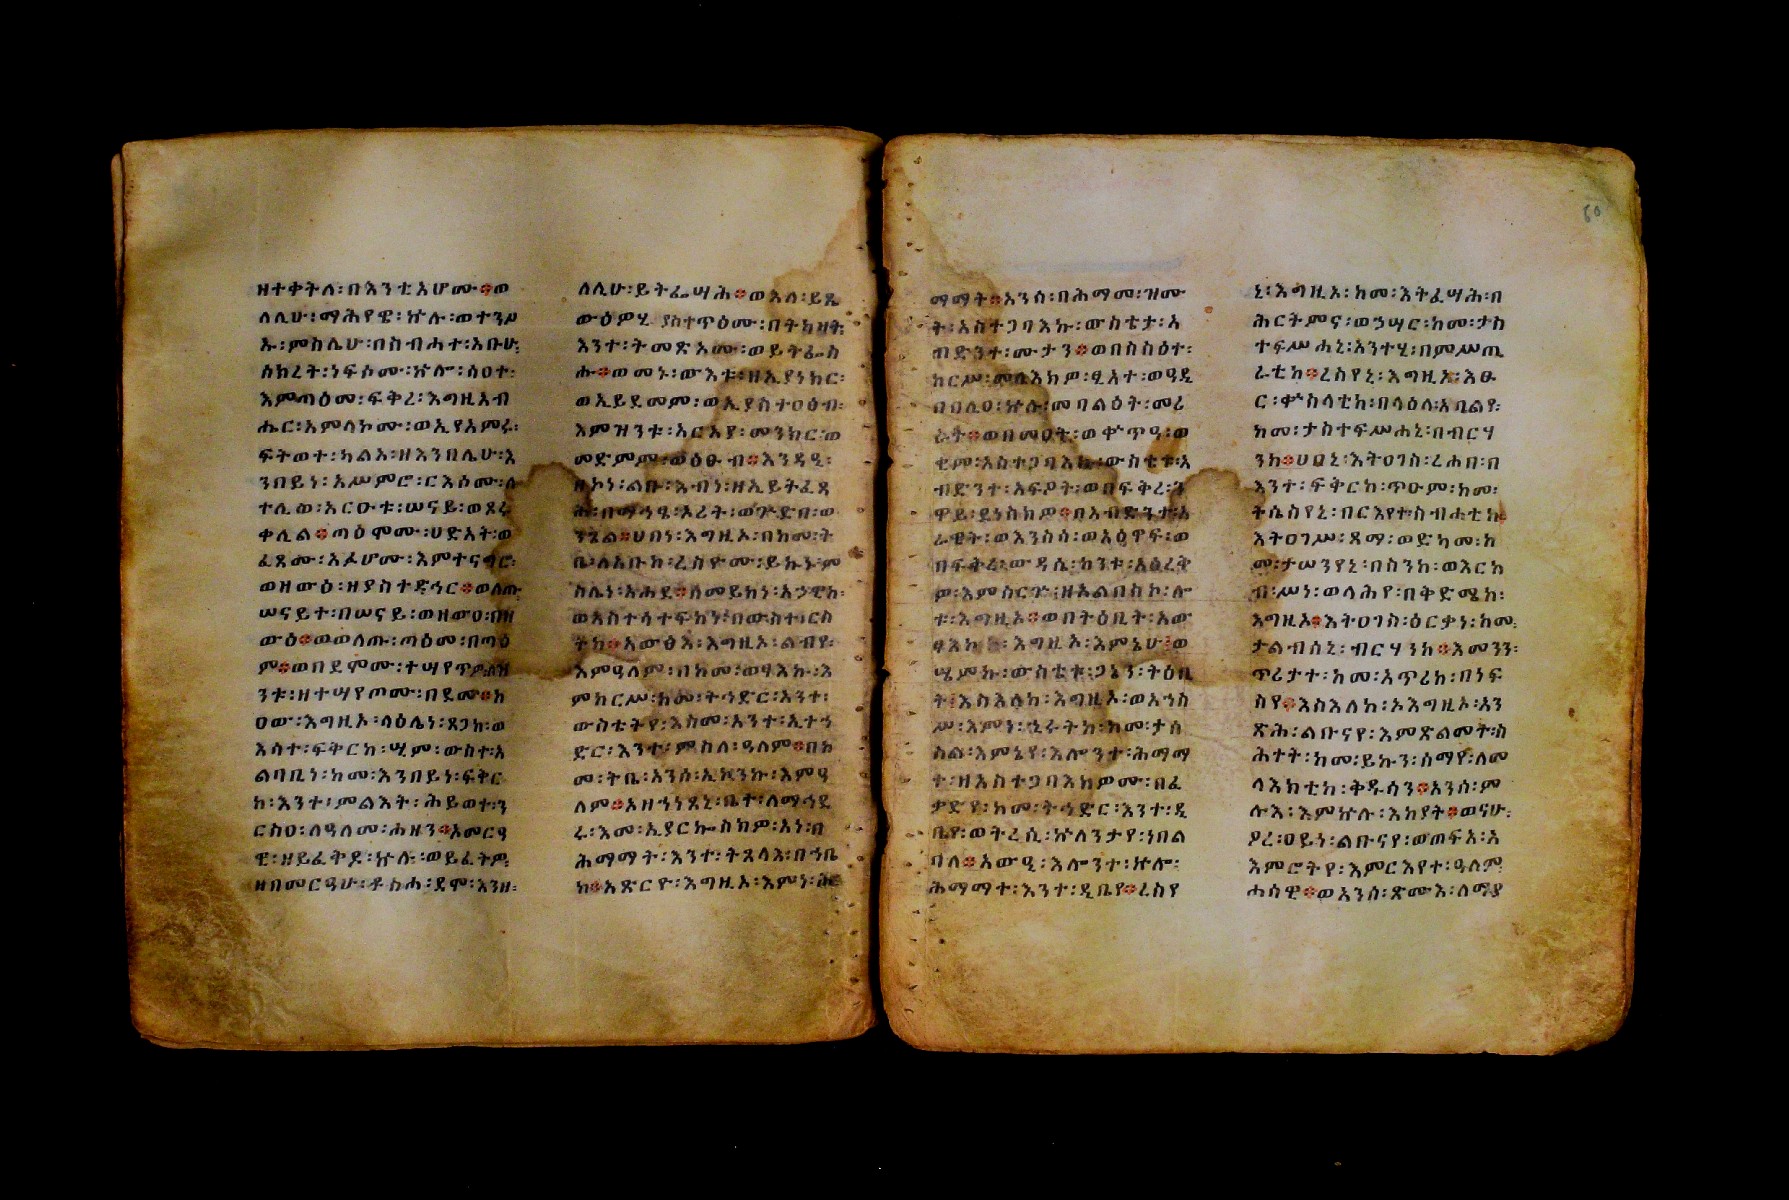 ዘተቀትለ፡በእንቲአሆሙ፨ወ
ለሊሁ፡ማሕየዊ፡ኵሉ፡ወተንሥ
አ፡ምስሌሁ፡በስብሐተ፡አቡሁ፡
ሰከረት፡ነፍሶሙ፡ኵሎ፡ሰዐተ፡
እምጣዕመ፡ፍቅረ፡እግዚአብ
ሔር፡አምላኮሙ፡ወኢየአምሩ፡
ፍትወተ፡ካልእ፡ዘእንበሌሁ፡እ
ንበይነ፡አሥምሮ፡ርእሶሙ፡
ተሊወ፡አርዑቱ፡ሠናይ፡ወጾሩ
ቀሊል፨ጣዕሞሙ፡ሀድአት፡ወ
ፈጸሙ፡አፈሆሙ፡እምተናግሮ፡
ወዘውዕ፡ዘያስተዳኅር፨ወለጡ
ሠናይተ፡በሠናይ፡ወዘውዐ፡በዘ
ውዕ፨ወወለጡ፡ጣዕመ፡በጣዕ
ም፨ወበደሞሙ፡ተሣየጥዎ
ንቱ፡ዘተሣየጦሙ፡በደሙ፨ከ
ዐው፡እግዚኦ፡ላዕሌነ፡ጸጋከ፡ወ
እሳተ፡ፍቅርከ፡ሢም፡ውስተ፡አ
ልባቢነ፡ከመ፡እንበይነ፡ፍቅር
ከ፡እንተ፡ምልእት፡ሕይወተ፡ን
ርስዐ፡ለዓለመ፡ሐዘን፨አመርዓ
ዊ፡ዘይፈትዶ፡ኵሉ፡ወይፈትዎ
ዘበመርዓሁ፡ቶስሐ፡ደሞ፡እንዘ፡
ለሊሁ፡ይትፌሣሕ፨ወእለ፡ይጼ
ውዕዎሂ፡ያስተጥዕሙ፡በትክዛት፡
እንተ፡ትመጽኦሙ፡ወይትፌስ
ሑ፨ወመኑ፡ውእቱ፡ዘኢያነክር፡
ወኢይደመም፡ወኢያስተዐዕብ፡
እምዝንቱ፡አርአያ፡መንክር፡ወ
መድምም፡ወዕፁብ፨እንዳዒ፡
ዘኮነ፡ልቡ፡እብነ፡ዘኢይትፈጸ
ንጌል፨ሀበነ፡እግዚኦ፡በከመ፡ት
ቤ፡ለአቡከ፡ረስዮሙ፡ይኩኑ፡ም
ስሌነ፡አሐደ፨ለመይከነ፡አኃዊከ፡
ወአስተሳተፍከነ፡በውስተ፡ርስ
ትከ፨አውፅእ፡እግዚኦ፡ልብየ፡
እምዓለም፡በከመ፡ወፃእኩ፡እ
ምከርሥ፡ከመ፡ትኅድር፡አንተ፡
ውስቴትየ፡እስመ፡አንተ፡ኢተኀ
ድር፡እንተ፡ምስለ፡ዓለም፨በከ
መ፡ትቤ፡አንሰ፡ኢኮንኩ፡እምዓ
ለም፨እዘኀነጸኒ፡ቤተ፡ለማኅደ
ሩ፡እመ፡ኢያርኰስክም፡አነ፡በ
ሕማማት፡እንተ፡ትጸላእ፡በኀቤ
ከ፨አጽርዮ፡እግዚኦ፡እምነ፡ሕ
ማማት፨አንሰ፡በሕማመ፡ዝሙ
ት፡አስተጋባእኩ፡ውስቴታ፡አ
ብድንተ፡ሙታን፨ወበስስዕተ፡
ከርሥ፡መላእክዎ፡ፂአተ፡ወዓዲ
በበሊዐ፡ኵሉ፡መባልዕት፡መሪ
ራት፨ወበመዐት፡ወቍጥዓ፡ወ
ቂም፡አስተጋባእኩ፡ውስቴቱ፡አ
ብድንተ፡አፍዖት፡ወበፍቅረ፡ን
ዋይ፡ደነስክዎ፨በአብድንታ፡አ
ራዊት፡ወእንስሳ፡ወአዕዋፍ፡ወ
በፍቅረ፡ውዳሴ፡ከንቱ፡አዕረቅ
ዎ፡እምስርጉ፡ዘአልበስኮ፡ሎ
ቱ፡እግዚኦ፨ወበትዕቢት፡አው
ፃእከ፡እግዚኦ፡እምኔሁ፡ወ
ሤምኩ፡ውስቴቱ፡ጋኔን፡ትዕቢ
ት፡እስእለከ፡እግዚኦ፡ወአኀስ
ሥ፡እምነ፡ኂሩትከ፡ከመ፡ታሰ
ስል፡እምኔየ፡እሎንተ፡ሕማማ
ት፡ዘአስተጋባእክዎሙ፡በፈ
ቃድየ፡ከመ፡ትኅድር፡አንተ፡ዲ
ቤየ፡ወትረሲ፡ኵለንታየ፡ነበል
ባለ፨አውዒ፡እሎንተ፡ኵሎ፡
ሕማማተ፡እንተ፡ዲቤየ፨ረስየ
ኒ፡እግዚኦ፡ከመ፡እትፈሣሕ፡በ
ሕርትምና፡ወኃሣር፡ከመ፡ታስ
ተፍሥሐኒ፡አንተሂ፡በምሥጢ
ራቲከ፨ረስየኒ፡እግዚኦ፡እፁ
ር፡ቍስላቲከ፡በላዕለ፡አባልየ፡
ከመ፡ታስተፍሥሐኒ፡በብርሃ
ንከ፨ሀበኒ፡እትዐገስ፡ረሐበ፡በ
እንተ፡ፍቅርከ፡ጥዑም፡ከመ፡
ትሴስየኒ፡በርእየተ፡ስብሐቲከ፨
እትዐገሥ፡ጸማ፡ወድካመ፡ከ
መ፡ታሠንየኒ፡በስንከ፡ወእርከ
ብ፡ሥነ፡ወላሕየ፡በቅድሜከ፡
እግዚኦ፨እትዐገስ፡ዕርቃነ፡ከመ፡
ታልብሰኒ፡ብርሃንከ፨እመንን፡
ጥሪታተ፡ከመ፡አጥሪከ፡በነፍ
ስየ፨እስእለከ፡ኦእግዚኦ፡አን
ጽሕ፡ልቡናየ፡እምጽልመት፡ስ
ሕተት፡ከመ፡ይኩን፡ሰማየ፡ለመ
ላእክቲከ፡ቅዱሳን፨አንሰ፡ም
ሉእ፡እምኵሉ፡እከያት፨ወናሁ፡
ዖረ፡ዐይነ፡ልቡናየ፡ወጠፍአ፡አ
እምሮትየ፡እምርእየተ፡ዓለም
ሐሳዊ፨ወአንሰ፡ጽሙእ፡ለማያ